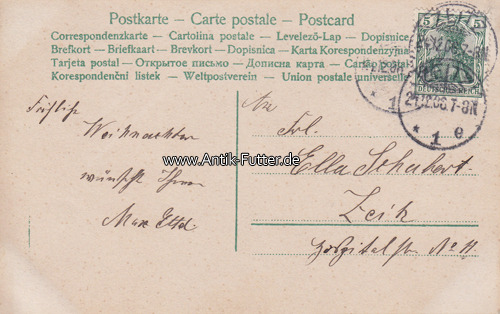 Postkarte - Carte postale - Postcard
Correspondenzkarte - Cartolina postale - Levelező-Lap - Dopisnice
Brefkort - Briefkaart - Brevkort - Dopisnica - Karta Korespondenzyjna
Tarjeta postal - Открытое письмо - Дописна карта - Cartão postal
Korespondenční listek - Weltpostverein - Union postale universelle
5 5
DEUTSCHES REICH
ZEITZ
21.12.06.7-8N
* 1 e
An
Frl.
Fröhliche
Weihnachten
wünscht Ihnen
Max
Ella Schubert
Zeitz
Hospitalstr. No 11
www.Antik-Futter.de